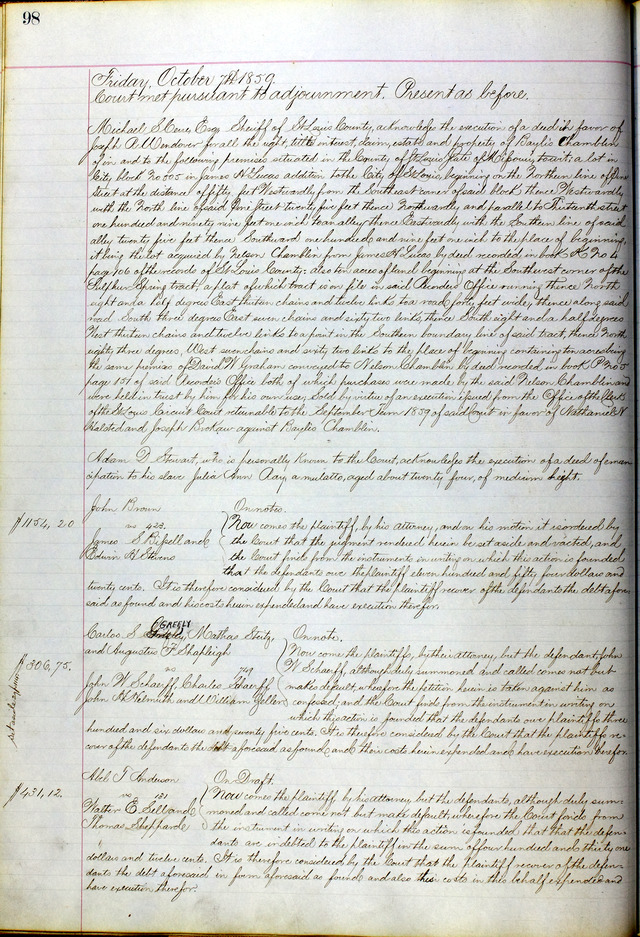 98
Friday, October 7th 1859
Court met pursuant to adjournment. Present as before.
Michael S. Cerre, Esq. Sheriff of St Louis County, acknowledge the execution of a deed in favor of
Joseph A. Windover for all the right, title, interest, claim, estate and property of Baylis Chamblin
of in and to the following premises situated in the County of St Louis State of Missouri, to wit; a lot in
City block No 505 in James H Lucas addition to the City of St Louis, beginning on the Northern line of Pine
street at the distance of fifty feet Westwardly from the Southeast corner of said block thence Westwardly
with the North line of said Pine Street twenty five feet thence Northwardly and parallel to Thirteenth street
one hundred and ninety nine feet one inch to an alley, thence Eastwardly with the Southern line of said
alley twenty five feet thence Southward one hundred and nine feet one inch to the place of beginning,
it being the lot acquired by Nelson Chamblin from James H Lucas by deed recorded in book K No 4
page 106 of the records of St Louis County: also ten acres of land beginning at the Southwest corner of the
Sulphur Spring tract, a plat of which tract is on file in said Recorders Office running thence North
eight and a half degrees East thirteen chains and twelve links to a road forty feet wide, thence along said
road South three degrees East seven chains and sixty two links, thence South eight and a half degrees
West thirteen chains and twelve links to a point in the Southern boundary line of said tract, thence North
eighty three degrees, West seven chains and sixty two links to the place of beginning containing ten acres being
the same premises of David W Graham conveyed to Nelson Chamblin by deed recorded in book P No 5
page 151 of said Recorders Office both of which purchases were made by the said Nelson Chamblin and
were held in trust by him for his own use; Sold by virtue of an execution issued from the Office of the Clerk
of the St Louis Circuit Court returnable to the September Term 1859 of said Court in favor of Nathaniel N
Halsted and Joseph Brokaw against Baylis Chamblin.
Adam D. Stewart, who is personally known to the Court, acknowledges the execution of a deed of eman
cipation to his slave Julia Ann Ray, a mulatto, aged about twenty four, of medium height.
John Brown On notes.
$1154,20 vs 423. Now comes the plaintiff, by his attorney, and on his motion it is ordered by
James S Bissell and the Court that the judgment rendered herein be set aside and vacated, and
Edwin H Stevens the Court finds from the instruments in writing on which this action is founded
that the defendants owe the plaintiff eleven hundred and fifty four dollars and
twenty cents. It is therefore considered by the Court that the plaintiff recover of the defendants the debt afore
said as found and his costs herein expended and have execution therefor.
GREELY
Carlos S Greely, Mathas Steitz, On note.
and Augustus F Shapleigh Now come the plaintiffs, by their attorney, but the defendant John
$306,75. vs 749 W Schaeff, although duly summoned and called comes not but
John W Schaeff, Charles Schaeff makes default, wherefore the petition herein is taken against him as
John A Helmuth and William Geller confessed; and the Court finds from the instrument in writing on
which this action is founded that the defendants owe plaintiffs three
hundred and six dollars and seventy five cents. It is therefore considered by the Court that the plaintiffs re-
cover of the defendants the debt aforesaid as found, and their costs herein expended and have execution therefor.
Abel T Anderson On Draft.
$431,12. vs 151 Now comes the plaintiff by his attorney but the defendants, although duly sum-
Walter E Sell and moned and called come not but make default, wherefore the Court finds from
Thomas Sheppard the instrument in writing on which this action is founded that that the defen-
dants are indebted to the plaintiff in the sum of four hundred and thirty one
dollars and twelve cents. It is therefore considered by the Court that the Plaintiff recover of the defen-
dants the debt aforesaid in form aforesaid as found and also his costs in this behalf expended and
have execution therefor.